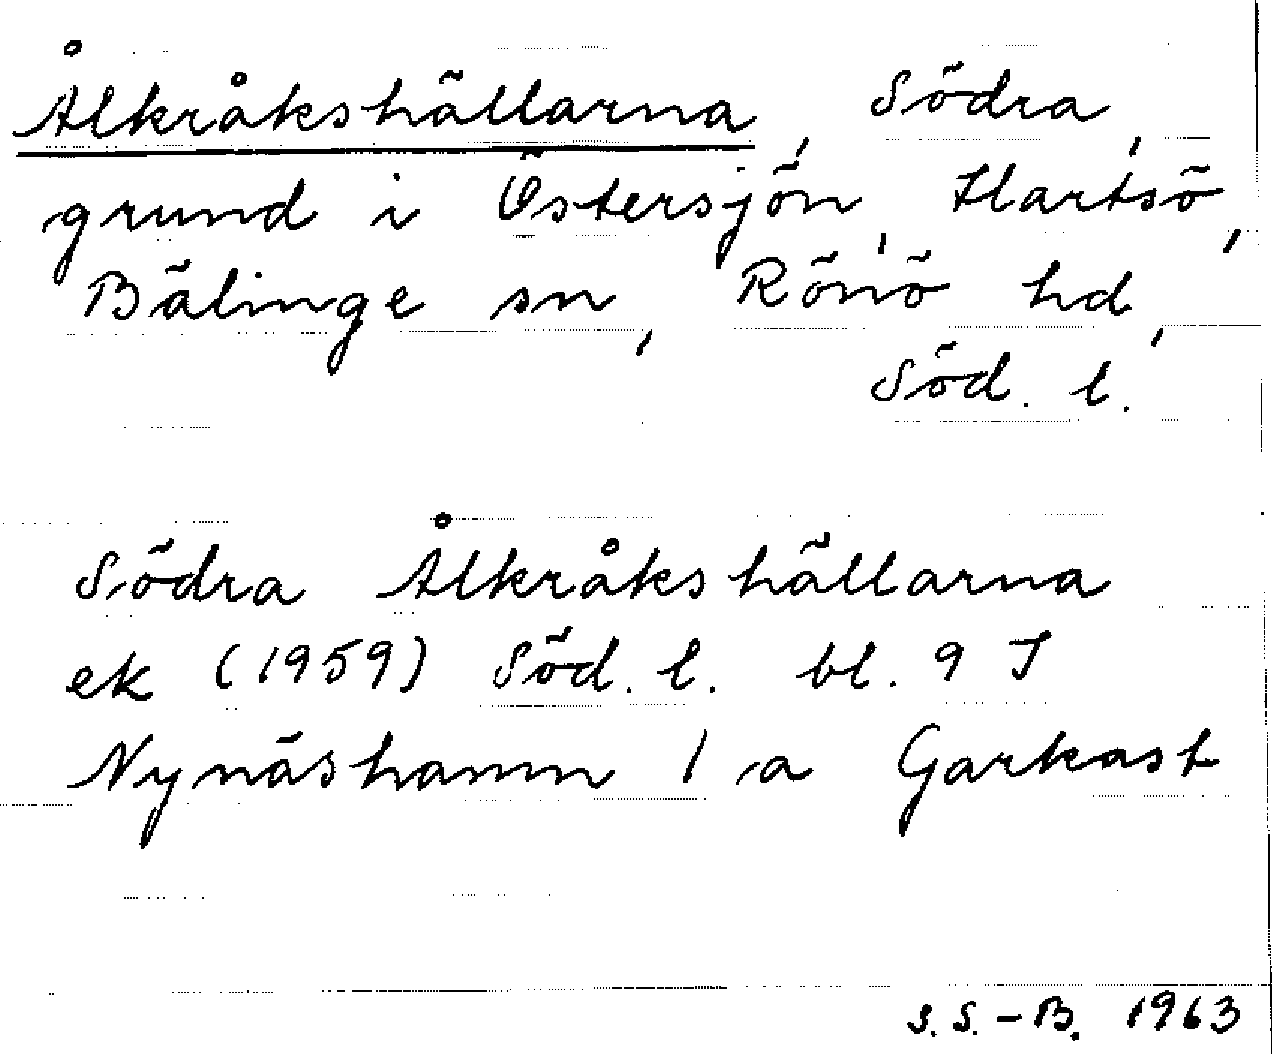 Ålkråkshällarna, Södra,
grund i Östersjön, Hartsö,
Bälinge sn, Rönö hd,
Söd. l.
Södra Ålkråkshällarna
ek (1959) Söd. l. bl. 9 I
Nynäshamn 1 a Garkast
S. S.-B. 1963